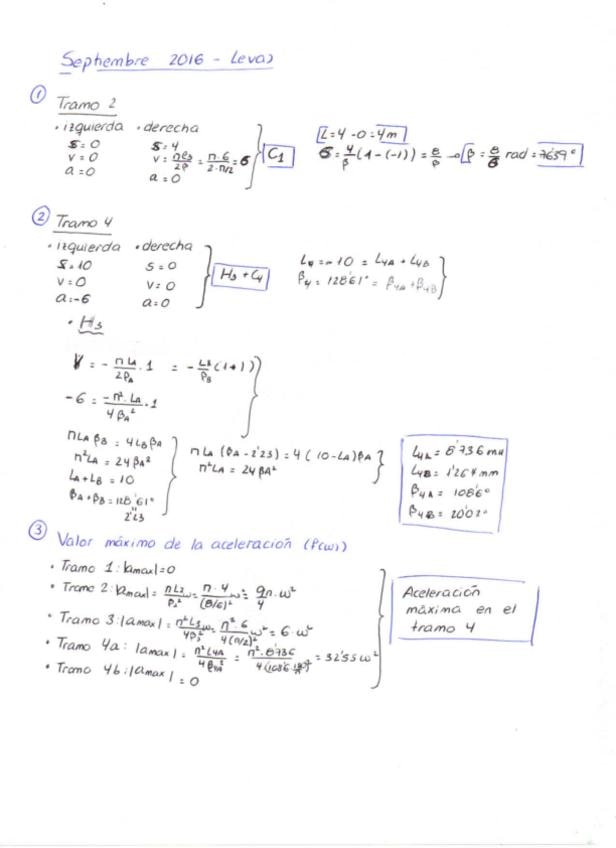 Septiembre 2016 - Levas
① Tramo 2
• izquierda • derecha
s = 0 s = 4
v = 0 v = πL3/2β = π·6/2·π/2 = 6
a = 0 a = 0
C1
L = 4 - 0 = 4m
6 = 4/β (1-(-1)) = 8/β → β = 8/6 rad = 76'39°
② Tramo 4
• izquierda • derecha
s = 10 s = 0
v = 0 v = 0
a = -6 a = 0
H3 + C4
L4 = 10 = L4A + L4B
β4 = 128'61° = β4A + β4B
• H3
V = - πLA/2βA · 1 = - LB/βB (1+1)
-6 = -π²·LA/4βA² · 1
πLAβB = 4LBβA
π²LA = 24βA²
LA + LB = 10
βA + βB = 128'61°
2'23
πLA (βA - 2'23) = 4 (10 - LA)βA
π²LA = 24βA²
L4A = 8'736 mm
L4B = 1'264 mm
β4A = 108'6°
β4B = 20'02°
③ Valor máximo de la aceleración (f(ω))
• Tramo 1: |amax| = 0
• Tramo 2: |amax| = πL2/β2² ω² = π·4/(8/6)² ω² = 9π/4 · ω²
• Tramo 3: |amax| = π²L3/4β3² ω² = π²·6/4(π/2)² ω² = 6·ω²
• Tramo 4a: |amax| = π²L4A/4β4A² = π²·8'736/4(108'6·π/180)² = 32'55 ω²
• Tramo 4b: |amax| = 0
Aceleración
máxima en el
tramo 4